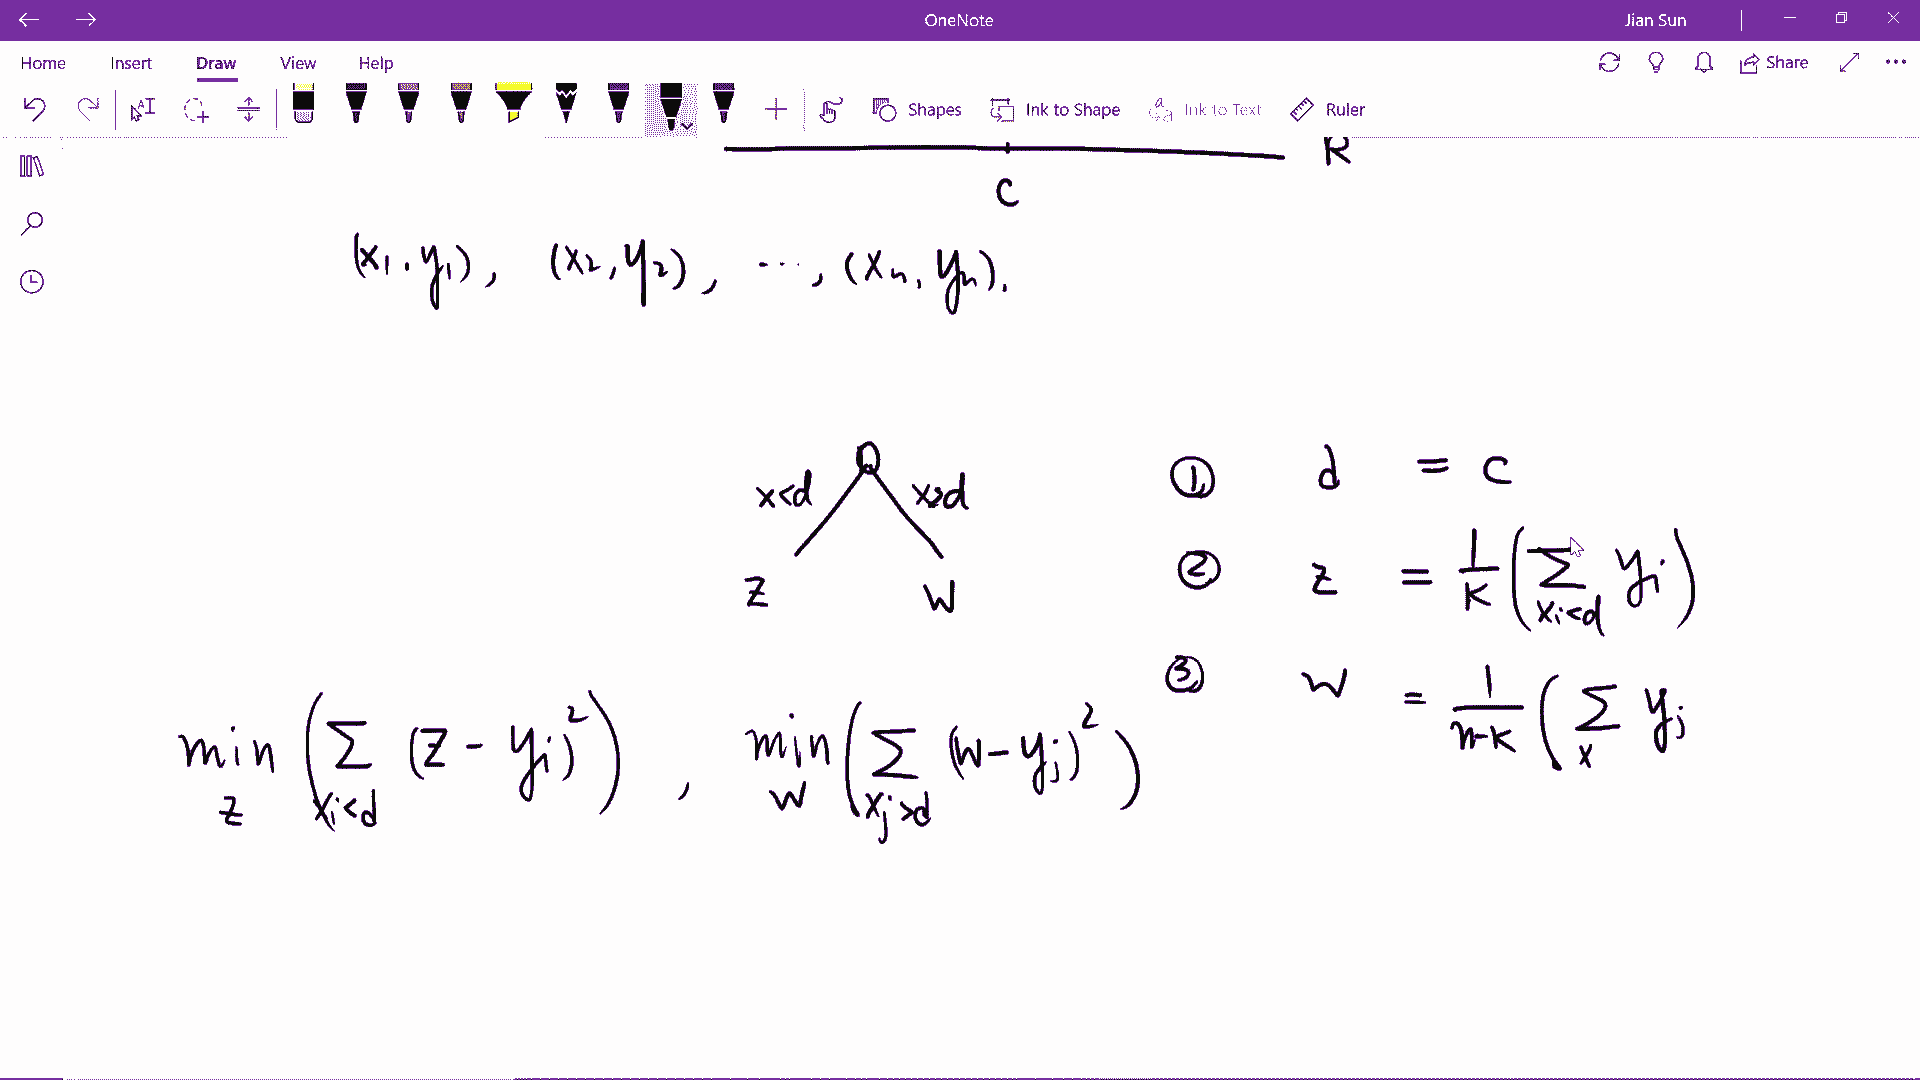 OneNote
Jian Sun
Home Insert Draw View Help
Share
Shapes Ink to Shape Ink to Text Ruler
R
C
(x₁, y₁), (x₂, y₂), ..., (xₙ, yₙ).
x<d x>d
z w
① d = c
② z = 1/k (∑ xᵢ<d yᵢ)
③ w = 1/(n-k) (∑ x yⱼ
min z (∑ xᵢ<d (z - yᵢ)²) , min w (∑ xⱼ>d (w - yⱼ)²)